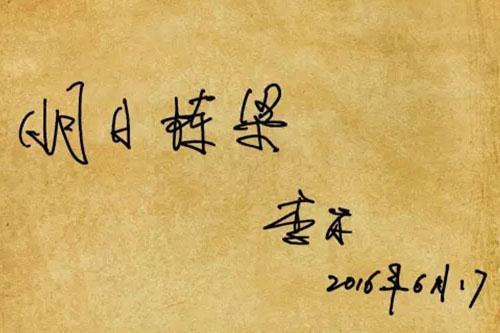 明日栋梁
李
2016年6月17